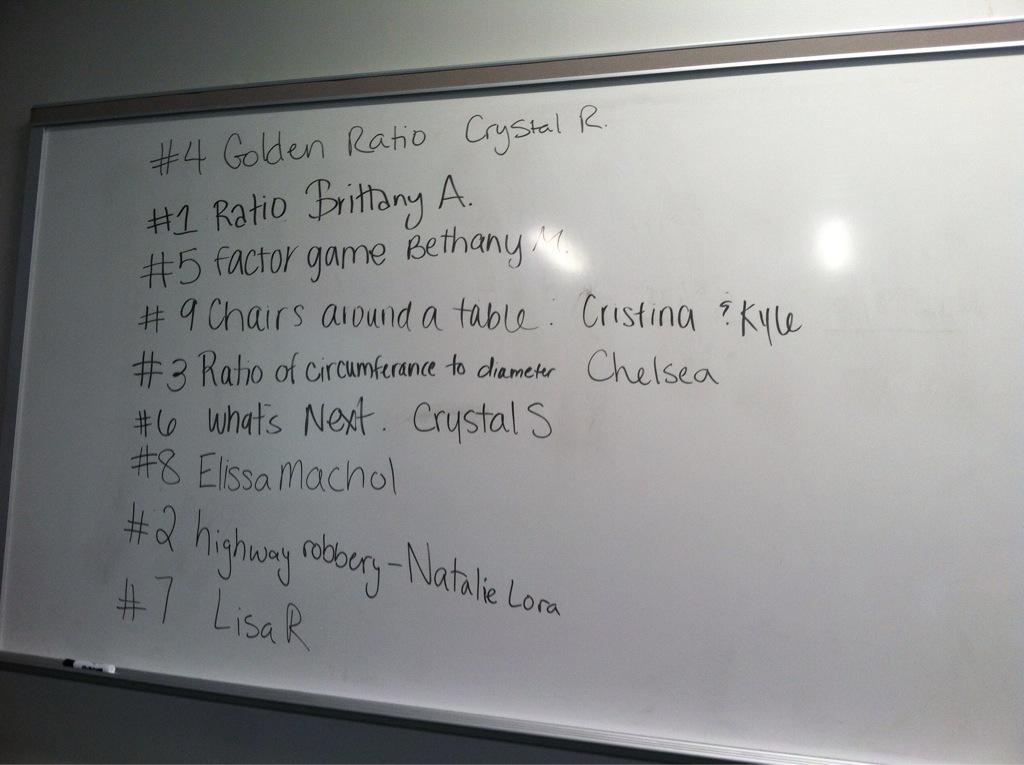 #4 Golden Ratio Crystal R.
#1 Ratio Brittany A.
#5 factor game Bethany M.
#9 Chairs around a table: Cristina & Kyle
#3 Ratio of circumferance to diameter Chelsea
#6 What's Next. Crystal S
#8 Elissa Machol
#2 highway robbery - Natalie Lora
#7 Lisa R